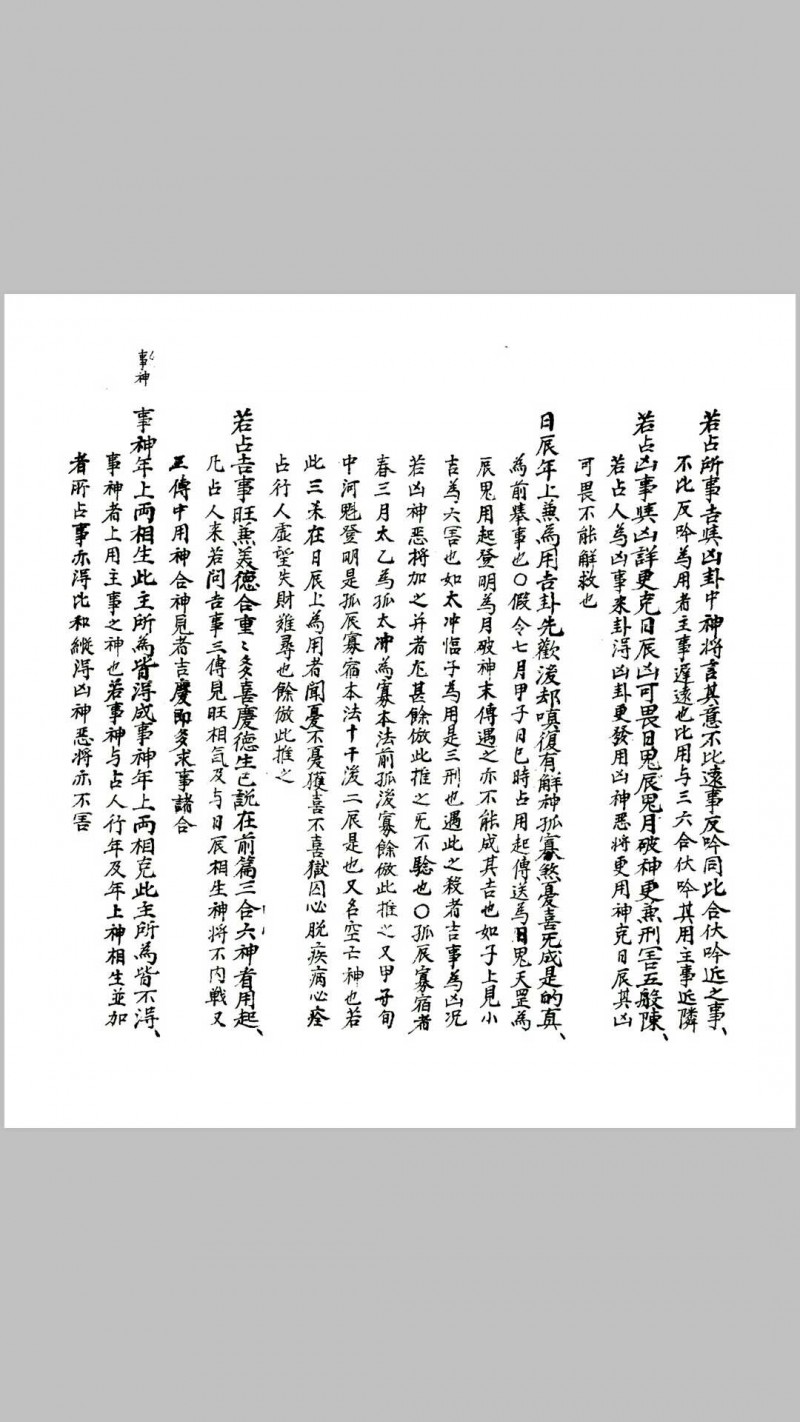 若占所事吉與凶卦中神將言其意不比遠事反吟同比合伏吟近之事、
不比反吟為用者主事遲遠也比用与三六合伏吟其用主事近隣
若占凶事與凶詳更克日辰凶可畏日鬼辰鬼月破神更兼刑害五般陳、
若占人為凶事来卦得凶卦更發用凶神恶将更用神克日辰其凶
可畏不能解救也
日辰年上兼為用吉卦先歡後却嗔復有解神孤寡煞憂喜无成是的真、
為前舉事也〇假令七月甲子日巳時占用起傳送為日鬼天罡為
辰鬼用起登明為月破神末傳遇之亦不能成其吉也如子上見小
吉為六害也如太冲臨子為用是三刑也遇此之殺者吉事為凶况
若凶神恶将加之并者尤甚餘倣此推之旡不騐也〇孤辰寡宿者
春三月太乙為孤太冲為寡本法前孤後寡餘倣此推之又甲子旬
中河魁登明是孤辰寡宿本法十干後二辰是也又名空亡神也若
此三来在日辰上為用者聞憂不憂獲喜不喜獄囚必脫疾病必痊
占行人虚望失財难尋也餘倣此推之
若占吉事旺兼美德合重〻多喜慶德生已說在前篇三合六神看用起、
凡占人来若問吉事三傳見旺相氣及与日辰相生神將不内戦又
三傳中用神合神見者吉慶即多求事諸合
事神
事神年上两相生此主所為皆得成事神年上两相克此主所為皆不得、
事神者上用主事之神也若事神与占人行年及年上神相生並加
者所占事亦得比和縱得凶神恶将亦不害